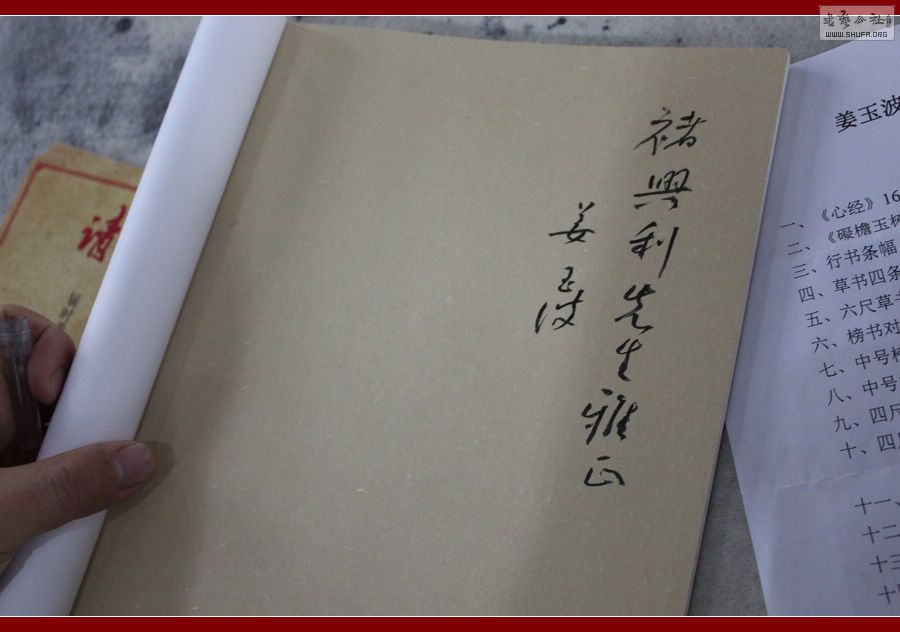 褚興利先生雅正
姜玉波
姜玉波
一、《心经》16
二、《礙檐玉树
三、行书条幅
四、草书四条
五、六尺草书
六、榜书对
七、中号榜
八、中号
九、四尺
十、四
十一、
十二
十三
十
请
届时
书艺公社
WWW.SHUFA.ORG